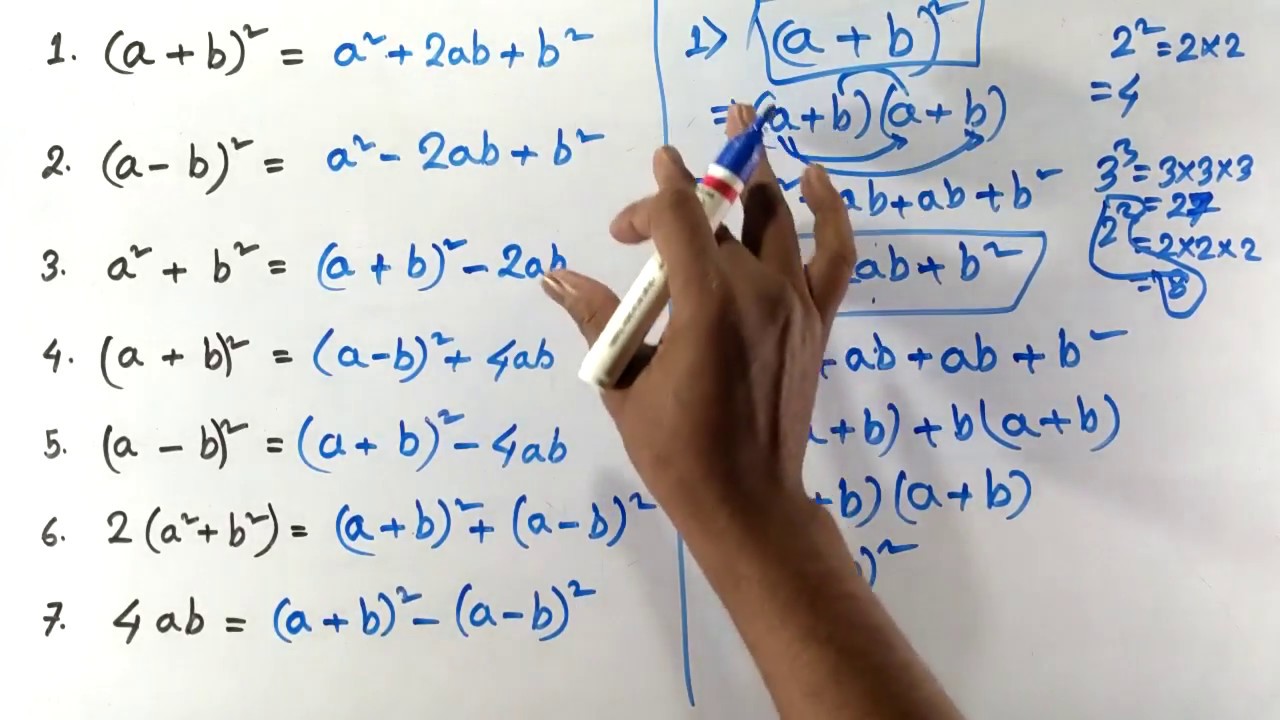 1. (a + b)² = a² + 2ab + b²
2. (a - b)² = a² - 2ab + b²
3. a² + b² = (a + b)² - 2ab
4. (a + b)² = (a-b)² + 4ab
5. (a - b)² = (a + b)² - 4ab
6. 2(a² + b²) = (a + b)² + (a - b)²
7. 4ab = (a + b)² - (a - b)²
1> (a + b)²
= (a+b)(a+b)
ab + ab + b²
ab + b²
+ ab + ab + b²
+ b) + b(a+b)
b)(a+b)
)²
2² = 2×2
= 4
3³ = 3×3×3
= 27
= 2×2×2
= 8